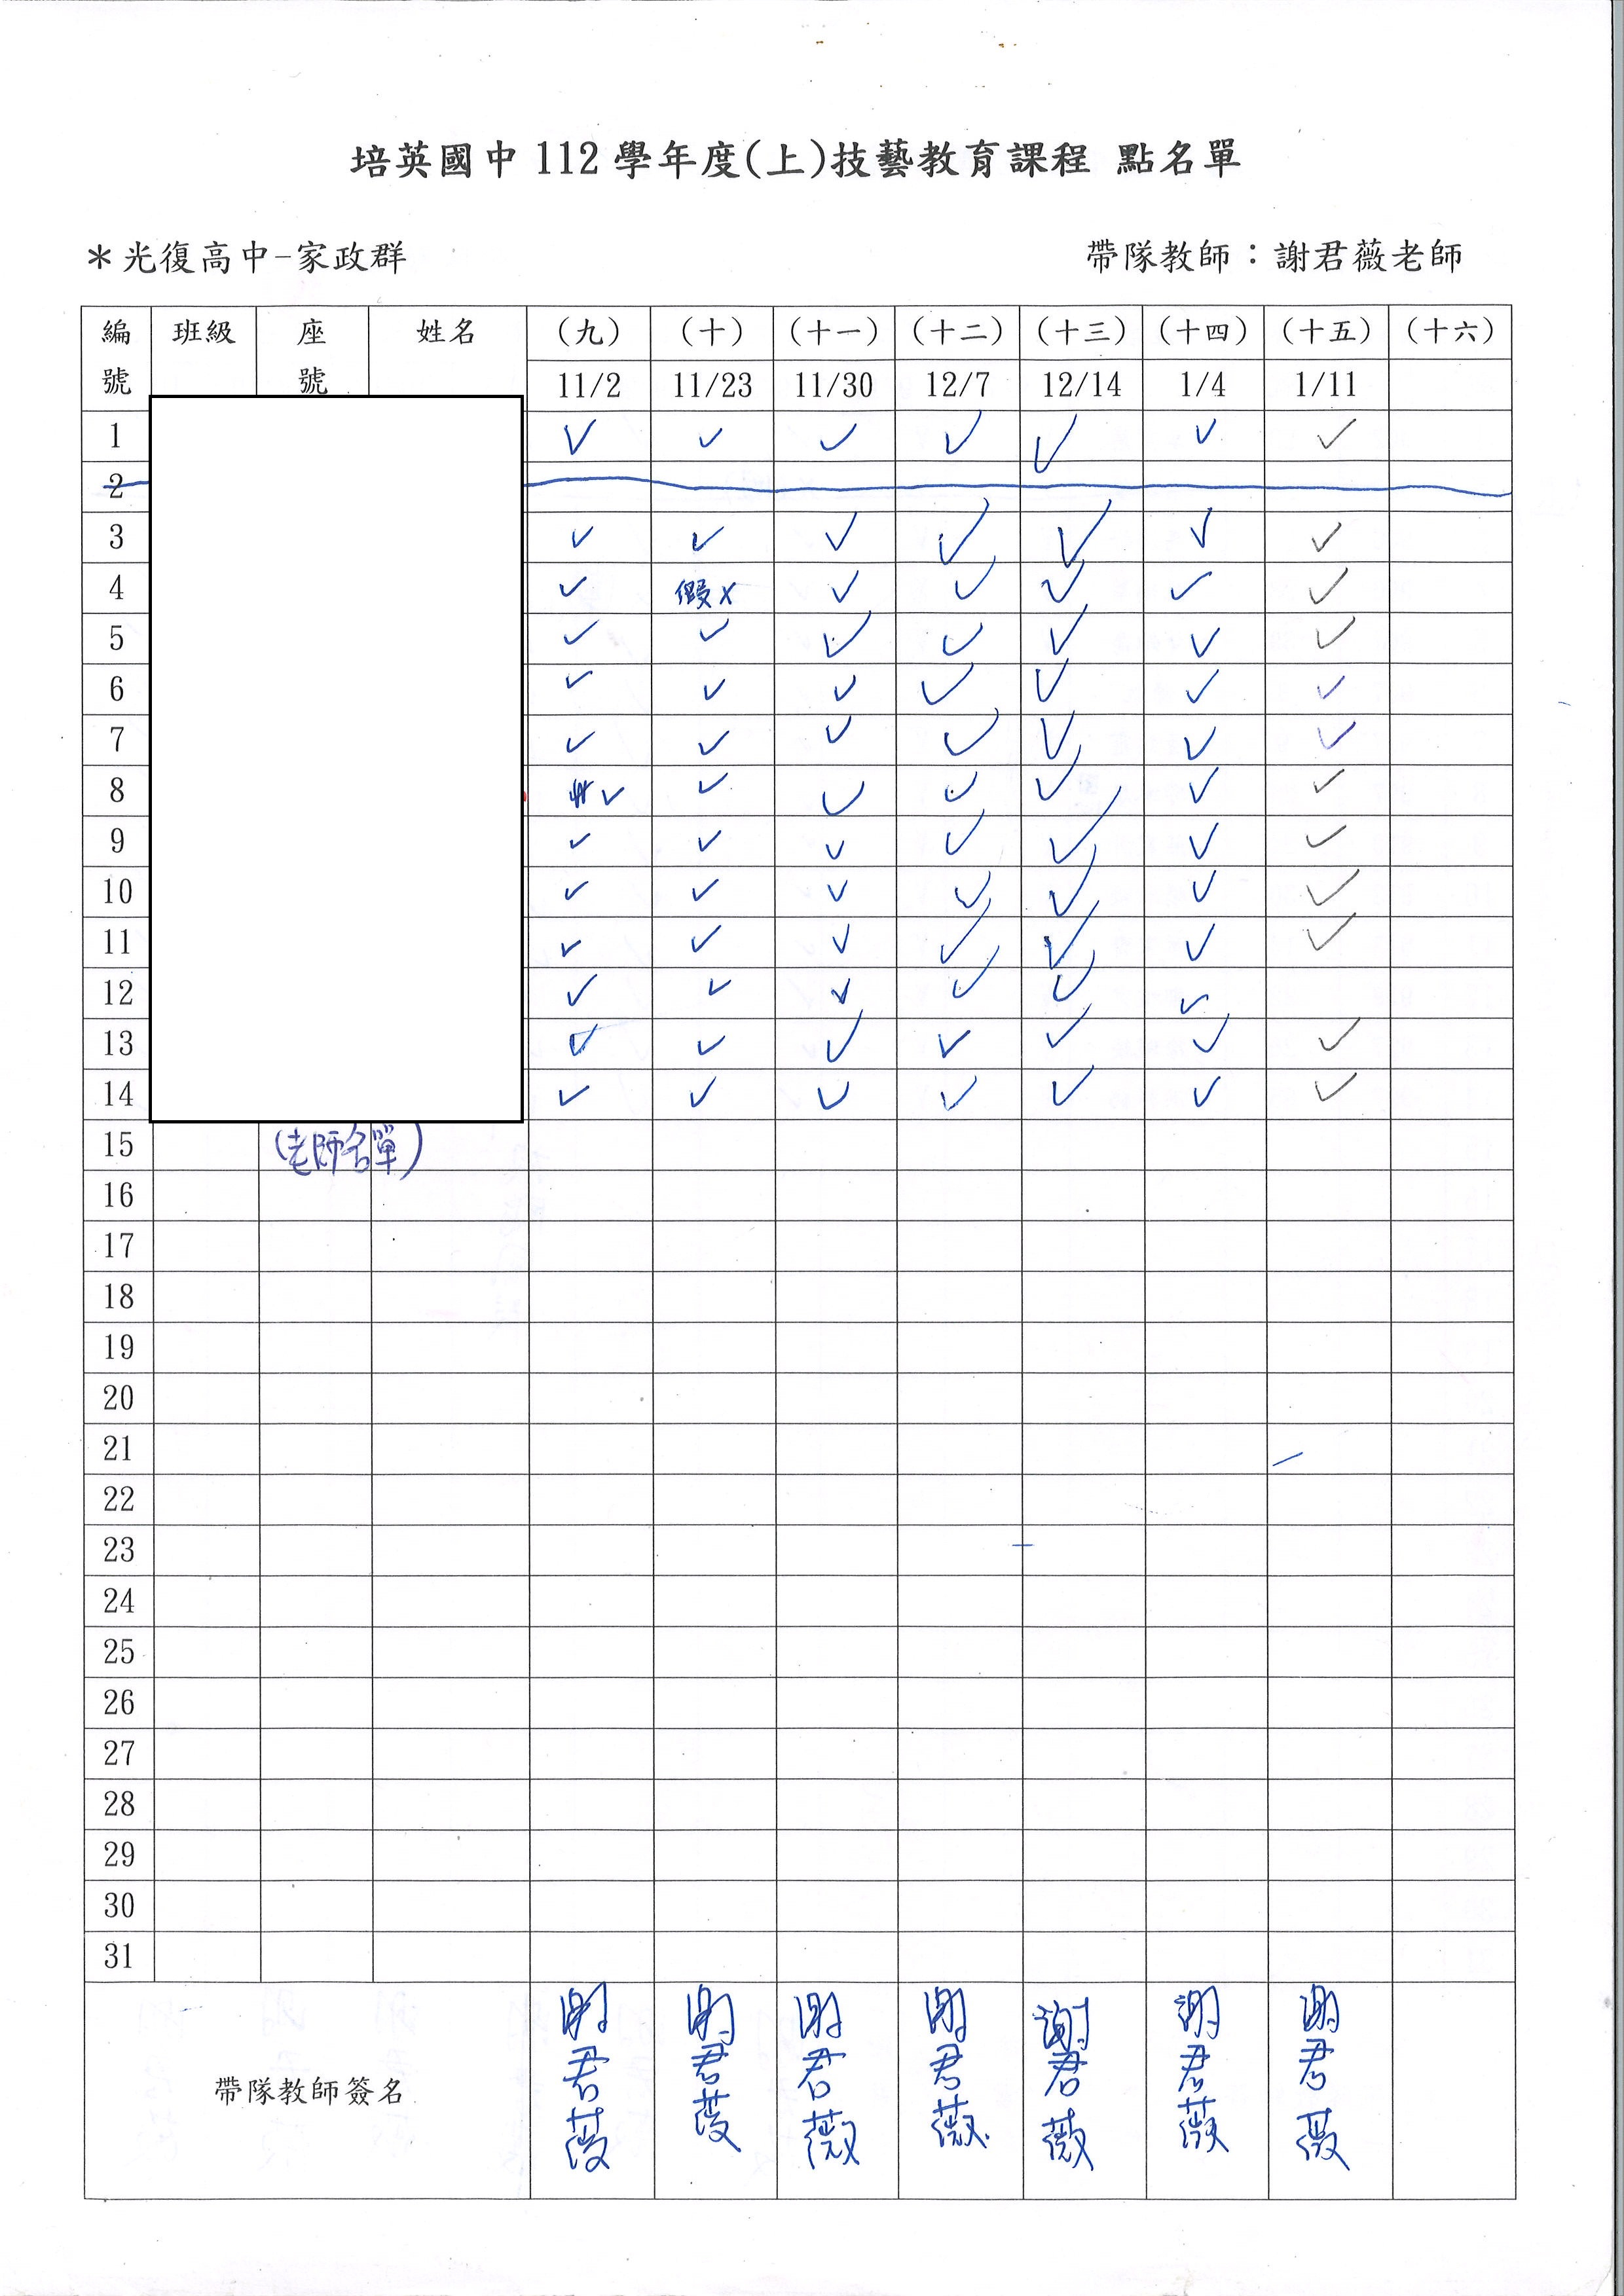 培英國中 112 學年度(上)技藝教育課程 點名單
＊光復高中-家政群 帶隊教師：謝君薇老師
編號 班級 座號 姓名 (九) (十) (十一) (十二) (十三) (十四) (十五) (十六)
11/2 11/23 11/30 12/7 12/14 1/4 1/11
1 ✓ ✓ ✓ ✓ ✓ ✓ ✓
2
3 ✓ ✓ ✓ ✓ ✓ ✓ ✓
4 ✓ 假x ✓ ✓ ✓ ✓ ✓
5 ✓ ✓ ✓ ✓ ✓ ✓ ✓
6 ✓ ✓ ✓ ✓ ✓ ✓ ✓
7 ✓ ✓ ✓ ✓ ✓ ✓ ✓
8 ✓ ✓ ✓ ✓ ✓ ✓ ✓
9 ✓ ✓ ✓ ✓ ✓ ✓ ✓
10 ✓ ✓ ✓ ✓ ✓ ✓ ✓
11 ✓ ✓ ✓ ✓ ✓ ✓ ✓
12 ✓ ✓ ✓ ✓ ✓ ✓
13 ✓ ✓ ✓ ✓ ✓ ✓ ✓
14 ✓ ✓ ✓ ✓ ✓ ✓ ✓
15 (老師名單)
16
17
18
19
20
21
22
23
24
25
26
27
28
29
30
31
帶隊教師簽名 謝君薇 謝君薇 謝君薇 謝君薇 謝君薇 謝君薇 謝君薇